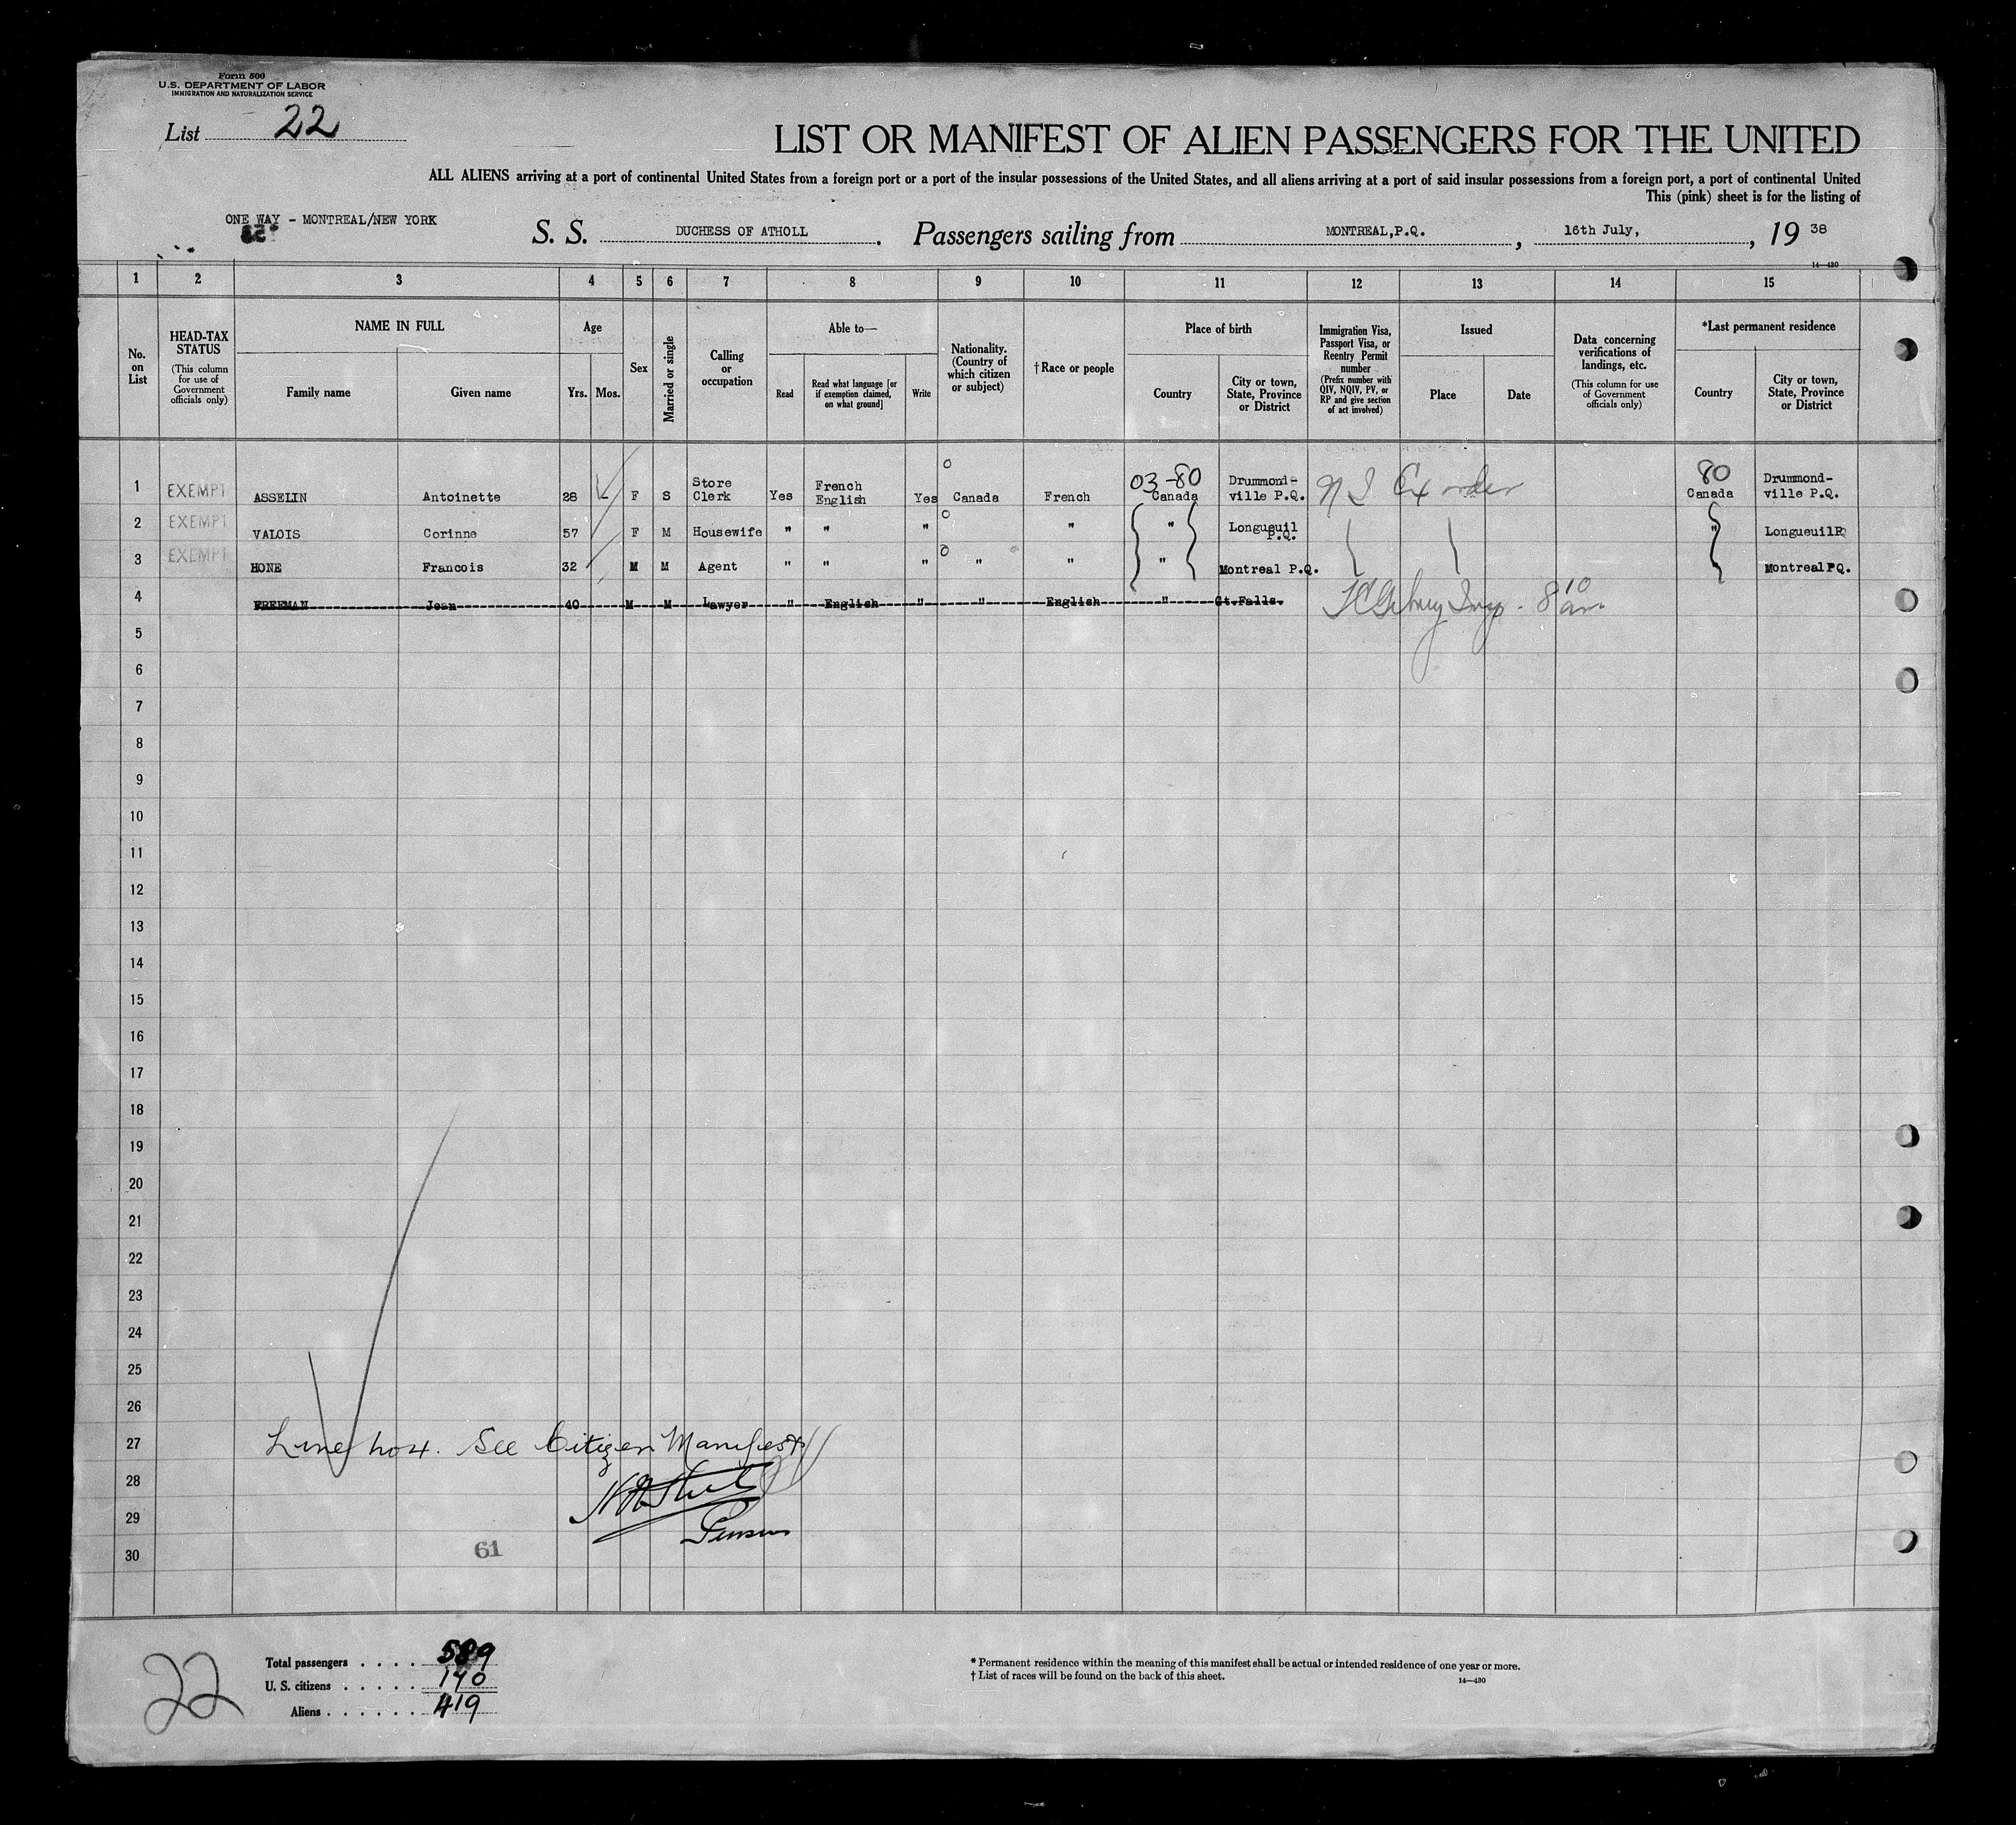 Form 500
U.S. DEPARTMENT OF LABOR
IMMIGRATION AND NATURALIZATION SERVICE
List 22
LIST OR MANIFEST OF ALIEN PASSENGERS FOR THE UNITED
ALL ALIENS arriving at a port of continental United States from a foreign port or a port of the insular possessions of the United States, and all aliens arriving at a port of said insular possessions from a foreign port, a port of continental United
This (pink) sheet is for the listing of
ONE WAY - MONTREAL/NEW YORK
S. S. DUCHESS OF ATHOLL. Passengers sailing from MONTREAL,P.Q., 16th July, , 19 38
14—430
1 2 3 4 5 6 7 8 9 10 11 12 13 14 15
No. on List
HEAD-TAX STATUS (This column for use of Government officials only)
NAME IN FULL
Family name Given name
Age
Yrs. Mos.
Sex
Married or single
Calling or occupation
Able to—
Read
Read what language [or if exemption claimed, on what ground]
Write
Nationality. (Country of which citizen or subject)
†Race or people
Place of birth
Country
City or town, State, Province or District
Immigration Visa, Passport Visa, or Reentry Permit number (Prefix number with QIV, NQIV, PV, or RP and give section of act involved)
Issued
Place Date
Data concerning verifications of landings, etc. (This column for use of Government officials only)
*Last permanent residence
Country
City or town, State, Province or District
1 EXEMPT ASSELIN Antoinette 28 F S Store Clerk Yes French English Yes Canada French 03-80 Canada Drummond-ville P.Q. 80 Canada Drummond-ville P.Q.
2 EXEMPT VALOIS Corinne 57 F M Housewife " " " " " Longueuil P.Q. " Longueuil P.Q.
3 EXEMPT HONE Francois 32 M M Agent " " " " " " Montreal P.Q. Montreal P.Q.
4 FREEMAN Jean 40 M M Lawyer " English " " English " Gt.Falls. 8 10 am
5
6
7
8
9
10
11
12
13
14
15
16
17
18
19
20
21
22
23
24
25
26
27 Line no 4. See Citizen Manifest
28
29
30
61
22
Total passengers . . . . 589
U. S. citizens . . . . . 170
Aliens . . . . . . 419
* Permanent residence within the meaning of this manifest shall be actual or intended residence of one year or more.
† List of races will be found on the back of this sheet.
14—430